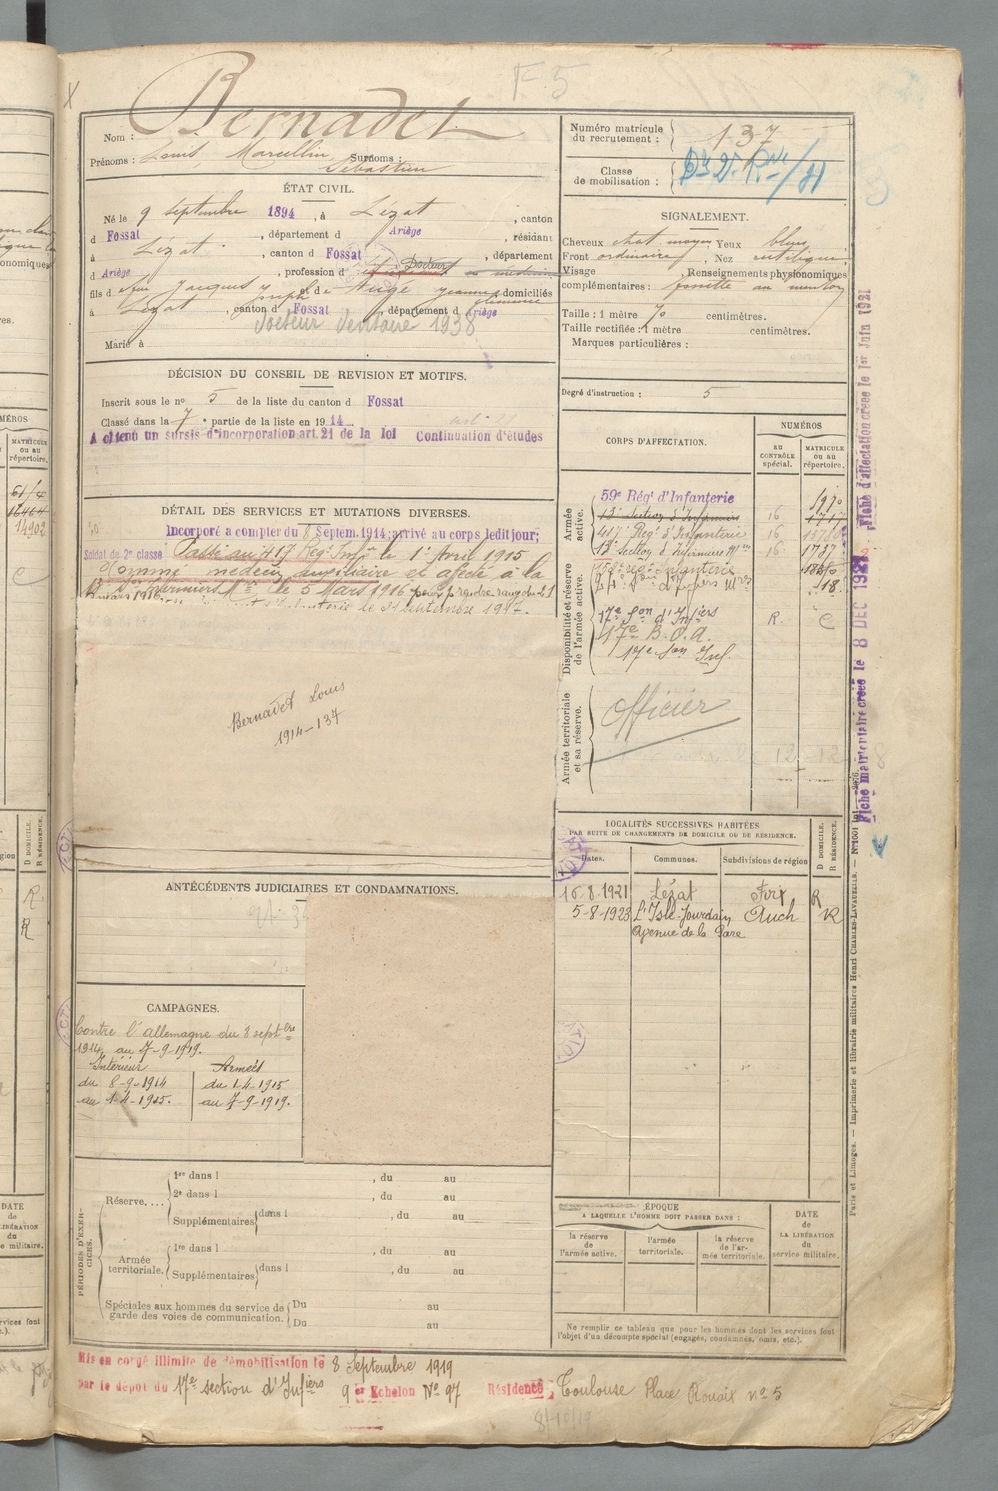 F. 5
Bernadet
Nom :
Prénoms : Louis, Marcellin Surnoms :
Sébastien
ÉTAT CIVIL.
Né le 9 septembre 1894, à Lézat, canton
d Fossat, département d Ariège, résidant
à Lézat, canton d Fossat, département
d Ariège, profession d Docteur en médecine
fils d Jacques Joseph et de Augé Jeanne domiciliés
à Lézat, canton d Fossat, département d Ariège
Docteur dentaire 1938
Marié à
DÉCISION DU CONSEIL DE REVISION ET MOTIFS.
Inscrit sous le nº 5 de la liste du canton d Fossat
Classé dans la 7e partie de la liste en 1914
A obtenu un sursis d'incorporation art. 21 de la loi Continuation d'études
DÉTAIL DES SERVICES ET MUTATIONS DIVERSES.
Incorporé à compter du 8 Septem. 1914; arrivé au corps ledit jour;
Soldat de 2e classe Passé au 417 Régt Infie le 1er Avril 1915
Nommé médecin auxiliaire et affecté à la
le 5 Mars 1916 pour prendre rang du 21
le 21 septembre 1917.
Bernadet Louis
1914-137
ANTÉCÉDENTS JUDICIAIRES ET CONDAMNATIONS.
CAMPAGNES.
Contre l'allemagne du 8 septbre
1914 au 7-9-1919.
Intérieur Armées
du 8-9-1914 du 1-4-1915
au 1-4-1915. au 7-9-1919.
PÉRIODES D'EXERCICES.
Réserve....
1re dans l , du au
2e dans l , du au
Supplémentaires dans l , du au
Armée territoriale.
1re dans l , du au
Supplémentaires dans l , du au
Spéciales aux hommes du service de garde des voies de communication.
Du au
Du au
Mis en congé illimité de démobilisation le 8 Septembre 1919
par le dépôt du 17e section d'Infiers 9er Echelon Nº 97 Résidence Toulouse Place Rouaix nº 5
8/10/19
Numéro matricule du recrutement : 137
Classe de mobilisation :
SIGNALEMENT.
Cheveux chat. moyen Yeux bleus
Front ordinaire, Nez rectiligne
Visage , Renseignements physionomiques
complémentaires : fossette au menton
Taille : 1 mètre 70 centimètres.
Taille rectifiée : 1 mètre centimètres.
Marques particulières :
Degré d'instruction : 5
CORPS D'AFFECTATION.
NUMÉROS
AU CONTRÔLE spécial.
MATRICULE OU AU répertoire.
Armée active.
59e Régt d'Infanterie 1970
13e Section d'Infirmiers 16 1717
417e Régt d'Infanterie 16
13e Section d'Infirmiers 16 1737
Disponibilité et réserve de l'armée active.
régt Infanterie
17e Son d'Infiers R. C
17e B.O.A.
17e Son Inf.
Armée territoriale et sa réserve.
Officier
LOCALITÉS SUCCESSIVES HABITÉES
PAR SUITE DE CHANGEMENTS DE DOMICILE OU DE RÉSIDENCE.
Dates. Communes. Subdivisions de région D DOMICILE. R RÉSIDENCE.
16-8-1921 Lézat Foix R
5-8-1923 L'Isle-Jourdain Auch R
Avenue de la Gare
ÉPOQUE
A LAQUELLE L'HOMME DOIT PASSER DANS :
la réserve de l'armée active.
l'armée territoriale.
la réserve de l'armée territoriale.
DATE de LA LIBÉRATION du service militaire.
Ne remplir ce tableau que pour les hommes dont les services font
l'objet d'un décompte spécial (engagés, condamnés, omis, etc.).
Fiche d'affectation créée le 1er Juin 1921
Fiche matriculaire créée le 8 DEC 192
Paris et Limoges. — Imprimerie et librairie militaires Henri CHARLES-LAVAUZELLE.